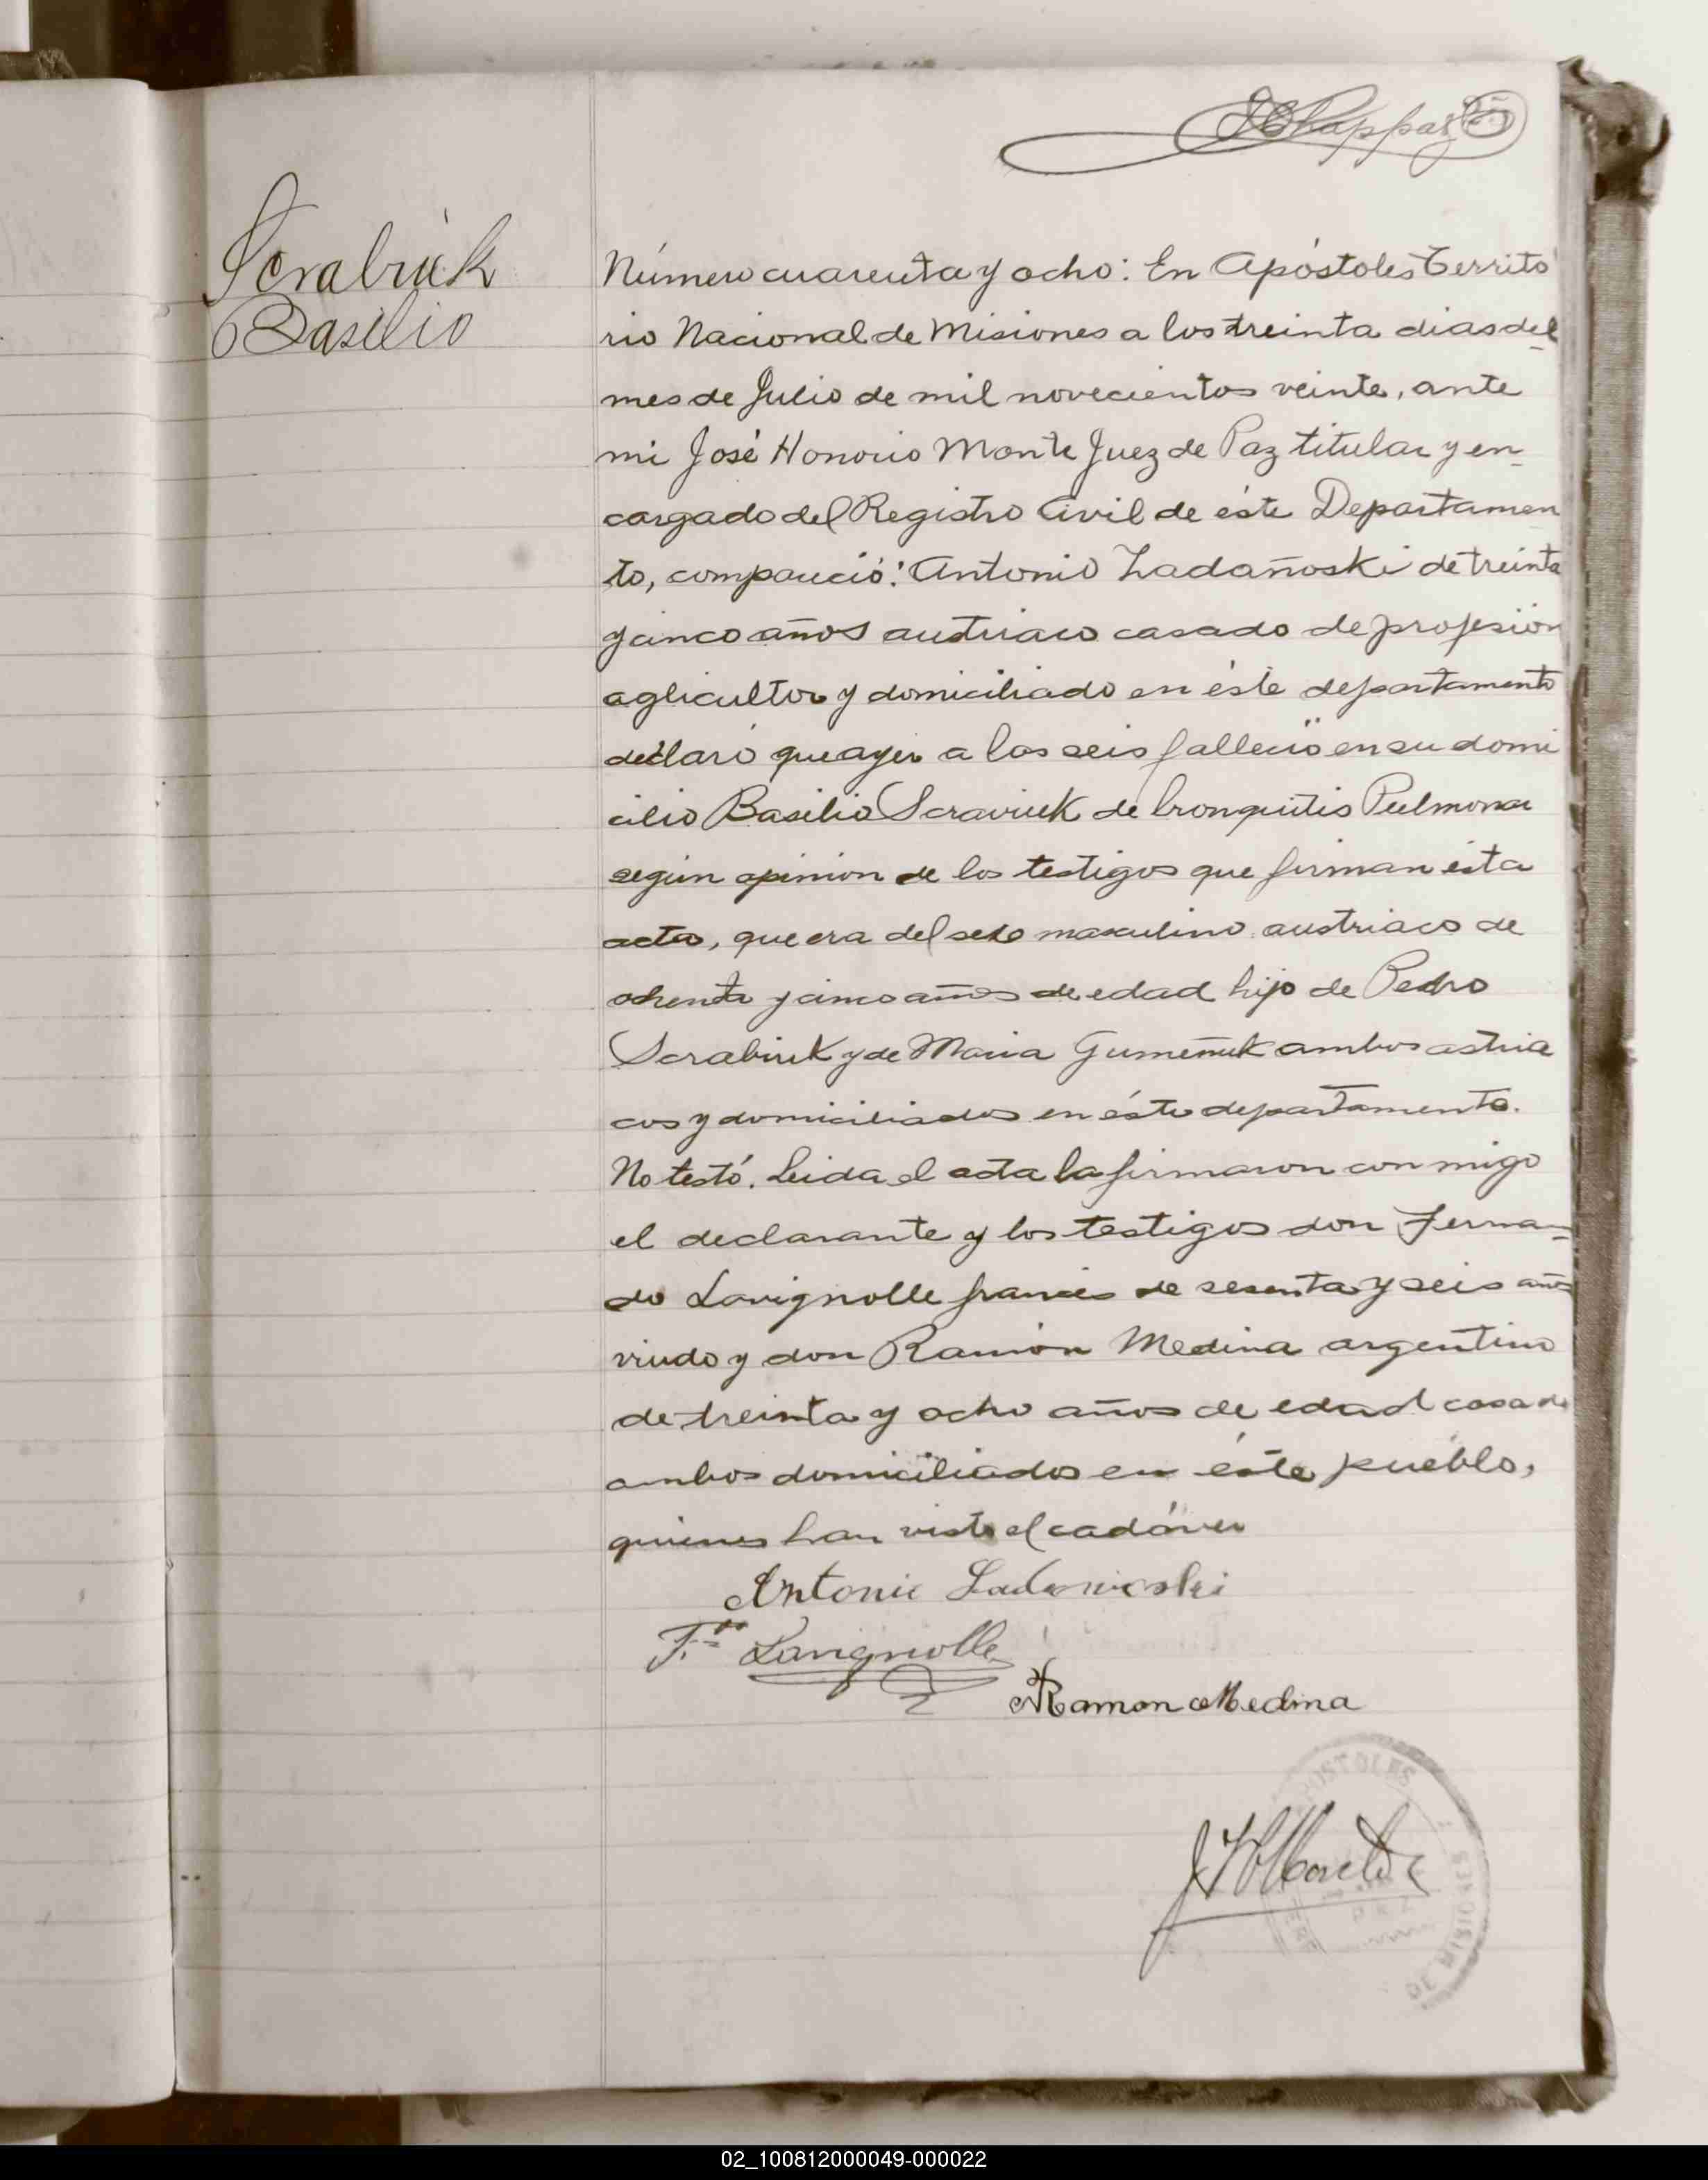 Scrabiuk
Basilio
Número cuarenta y ocho: En Apóstoles Territo
rio Nacional de Misiones a los treinta dias del
mes de Julio de mil novecientos veinte, ante
mi José Honorio Monte Juez de Paz titular y en-
cargado del Registro Civil de éste Departamen
to, compareció: Antonio Ladañoski de treinta
y cinco años austriaco casado de profesión
aglicultor y domiciliado en éste departamento
declaró que ayer a las seis falleció en su domi
cilio Basilio Scraviuk de bronquitis Pulmonar
según opinion de los testigos que firman esta
acta, que era del sexo masculino austriaco de
ochenta y cinco años de edad hijo de Pedro
Scrabiuk y de Maria Gumeñuk ambos astria
cos y domiciliados en éste departamento.
No testó. Leida el acta la firmaron con migo
el declarante y los testigos don Ferna-
do Lavignolle francés de sesenta y seis años
viudo y don Ramón Medina argentino
de treinta y ocho años de edad casado
ambos domiciliados en éste pueblo,
quienes han visto el cadáver
Antonio Ladanioski
F. Lavignolle
Ramon Medina
APOSTOLES
DE MISIONES
PAZ
02_100812000049-000022